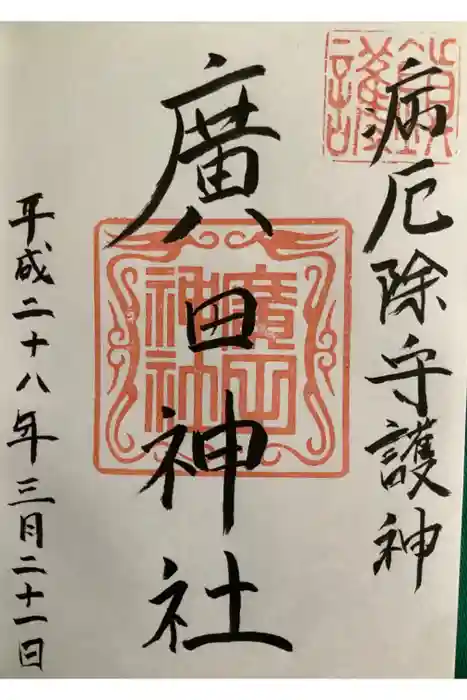 病厄除守護神
鎮護
廣田神社
廣田神社
平成二十八年三月二十一日